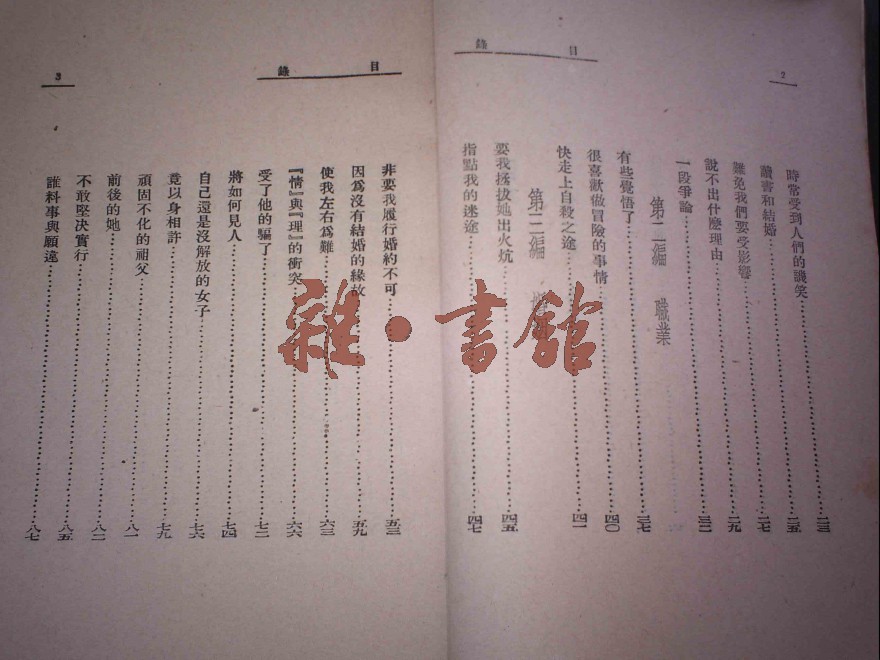 目錄
2
時常受到人們的譏笑……二三
讀書和結婚……二五
難免我們要受影響……二七
說不出什麼理由……二九
一段爭論……三二
第二編　職業
有些覺悟了……三七
很喜歡做冒險的事情……四〇
快走上自殺之途……四一
第三編
要我拔她出火炕……四五
指點我的迷途……四七
目錄
3
非要我履行婚約不可……五三
因爲沒有結婚的緣故……五九
使我左右爲難……六三
『情』與『理』的衝突……六六
受了他的騙了……七二
將如何見人……七四
自己還是沒解放的女子……七六
竟以身相許……七九
頑固不化的祖父……八一
前後的她……八二
不敢堅決實行……八五
誰料事與願違……八七
雜·書館